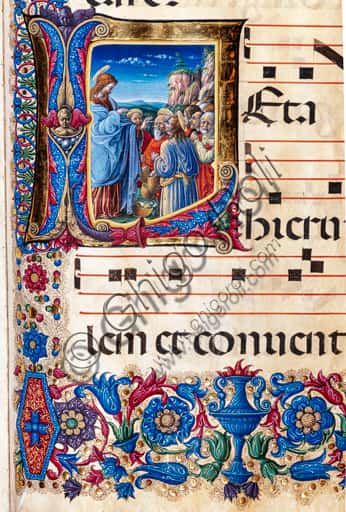 L Eta
hieru
lem et conuent
© Ghigo Roli
www.ghigoroli.com